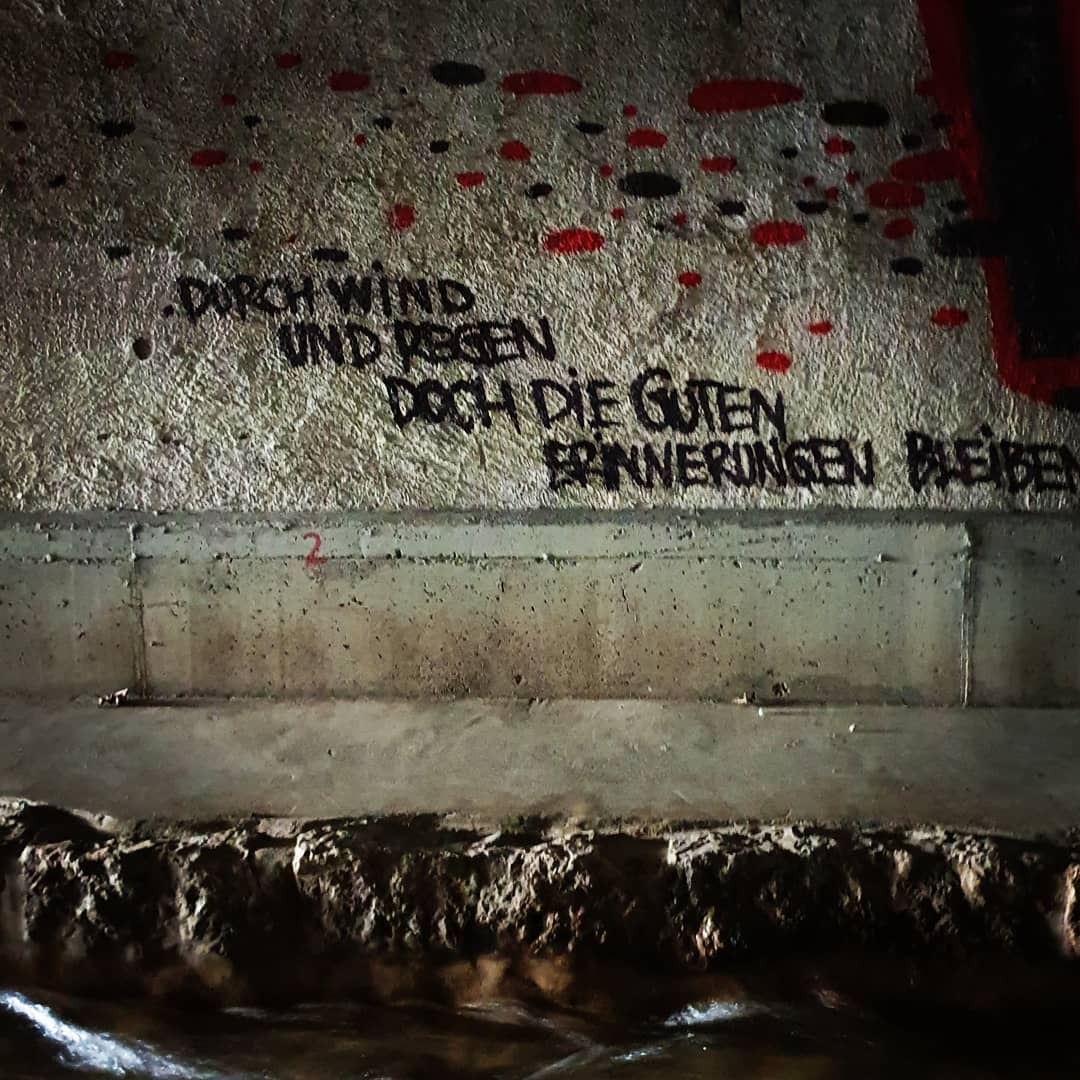 .DURCH WiND
UND REGEN
DOCH DiE GUTEN
ERiNNERUNGEN BLEiBEN
2